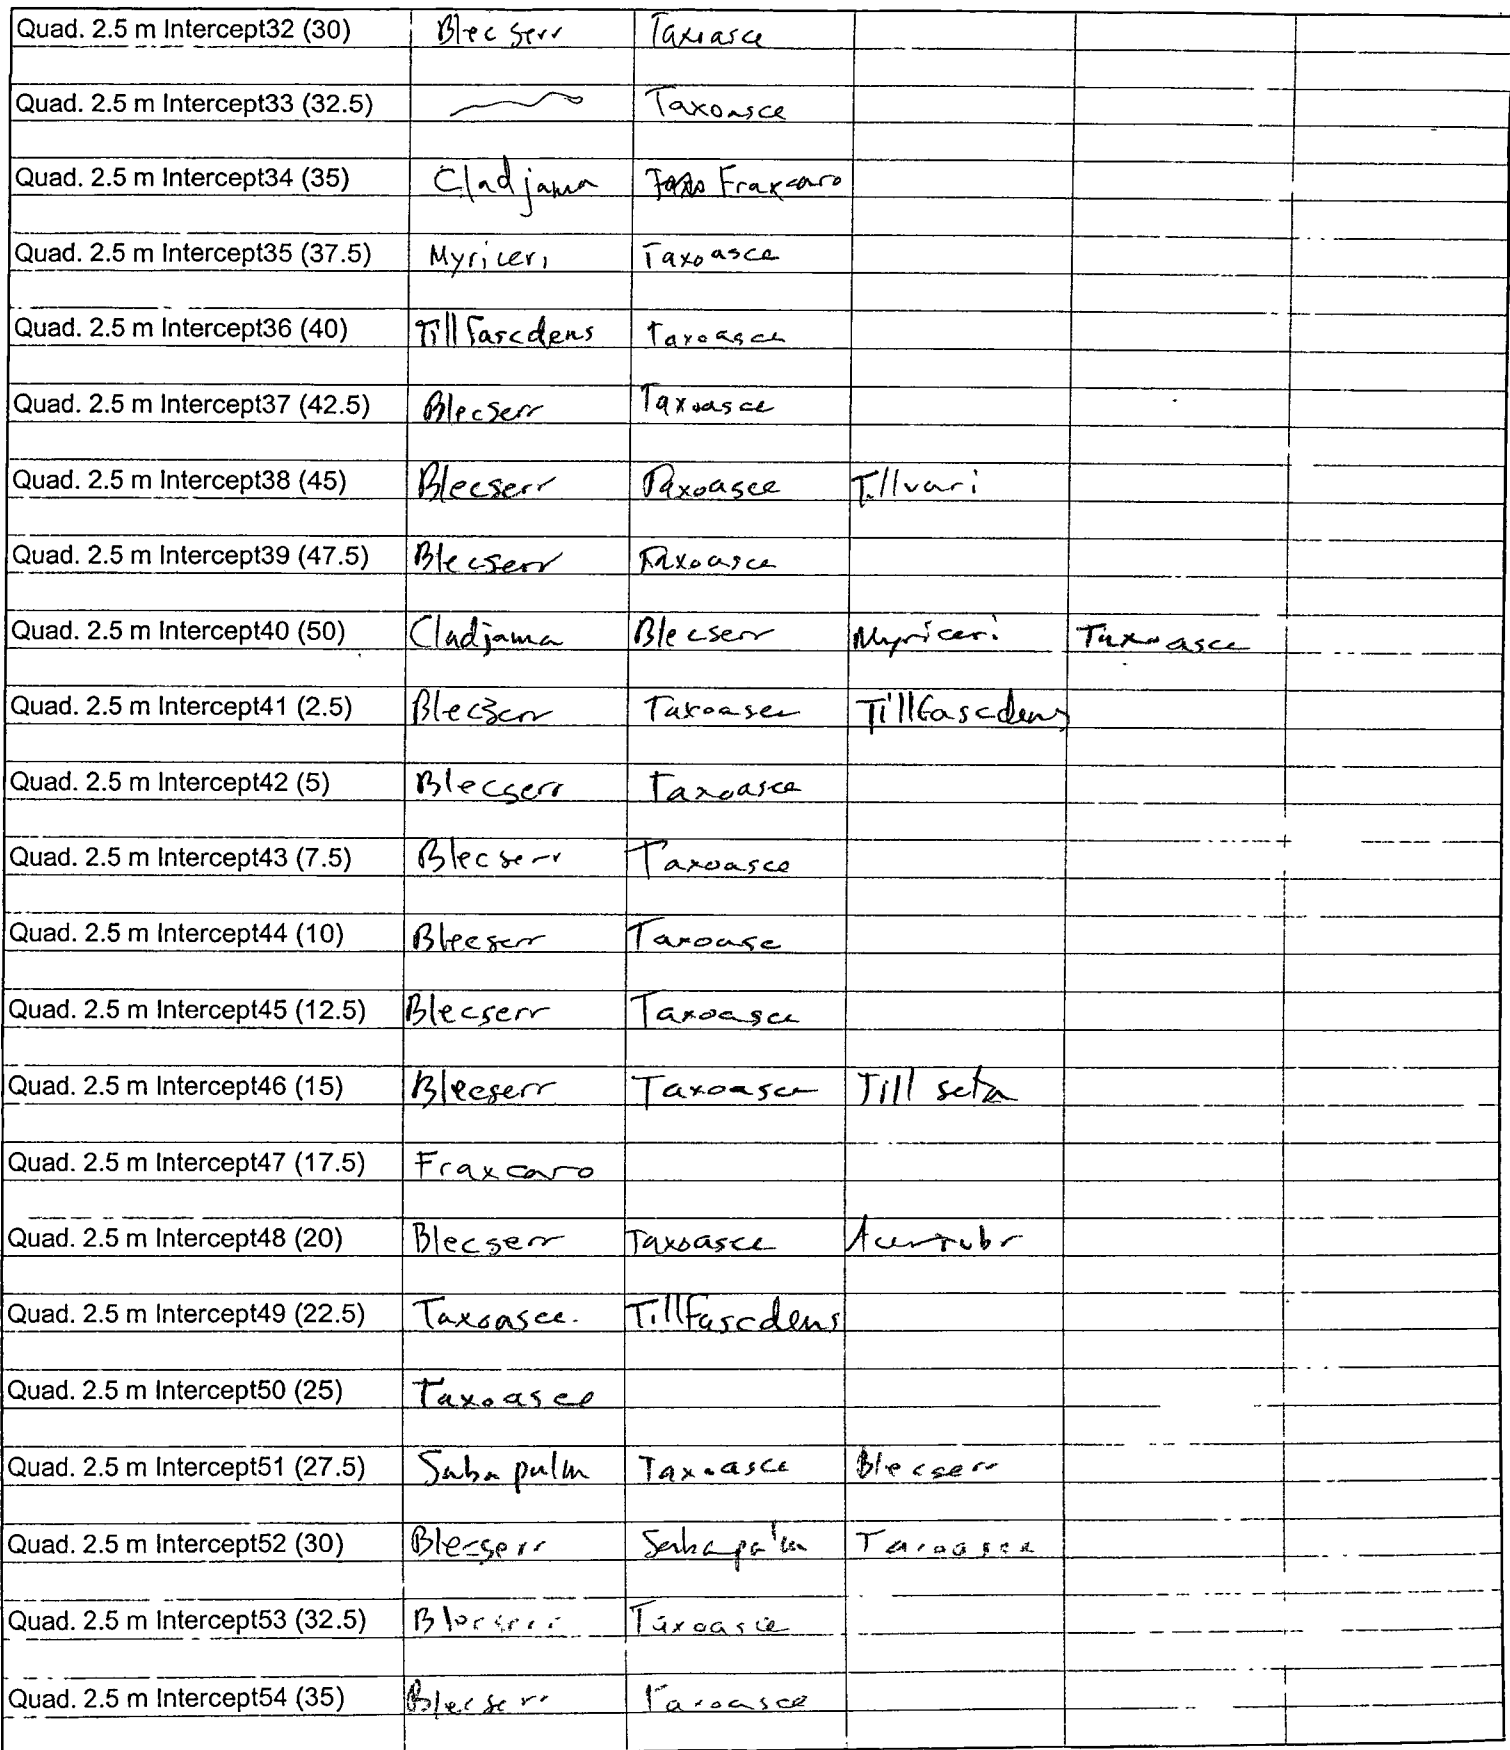 Quad. 2.5 m Intercept32 (30) Blecserr Taxoasce
Quad. 2.5 m Intercept33 (32.5) Taxoasce
Quad. 2.5 m Intercept34 (35) Cladjama Fraxcaro
Quad. 2.5 m Intercept35 (37.5) Myriceri Taxoasce
Quad. 2.5 m Intercept36 (40) Tillfascdens Taxoasce
Quad. 2.5 m Intercept37 (42.5) Blecserr Taxoasce
Quad. 2.5 m Intercept38 (45) Blecserr Taxoasce Tillvari
Quad. 2.5 m Intercept39 (47.5) Blecserr Taxoasce
Quad. 2.5 m Intercept40 (50) Cladjama Blecserr Myriceri Taxoasce
Quad. 2.5 m Intercept41 (2.5) Blecserr Taxoasce Tillfascdens
Quad. 2.5 m Intercept42 (5) Blecserr Taxoasce
Quad. 2.5 m Intercept43 (7.5) Blecserr Taxoasce
Quad. 2.5 m Intercept44 (10) Blecserr Taxoasc
Quad. 2.5 m Intercept45 (12.5) Blecserr Taxoasce
Quad. 2.5 m Intercept46 (15) Blecserr Taxoasce Till seta
Quad. 2.5 m Intercept47 (17.5) Fraxcaro
Quad. 2.5 m Intercept48 (20) Blecserr Taxoasce Acerrubr
Quad. 2.5 m Intercept49 (22.5) Taxoasce. Tillfascdens
Quad. 2.5 m Intercept50 (25) Taxoasce
Quad. 2.5 m Intercept51 (27.5) Sabapalm Taxoasce Blecserr
Quad. 2.5 m Intercept52 (30) Blecserr Sabapalm Taxoasce
Quad. 2.5 m Intercept53 (32.5) Blecserr Taxoasce
Quad. 2.5 m Intercept54 (35) Blecserr Taxoasce